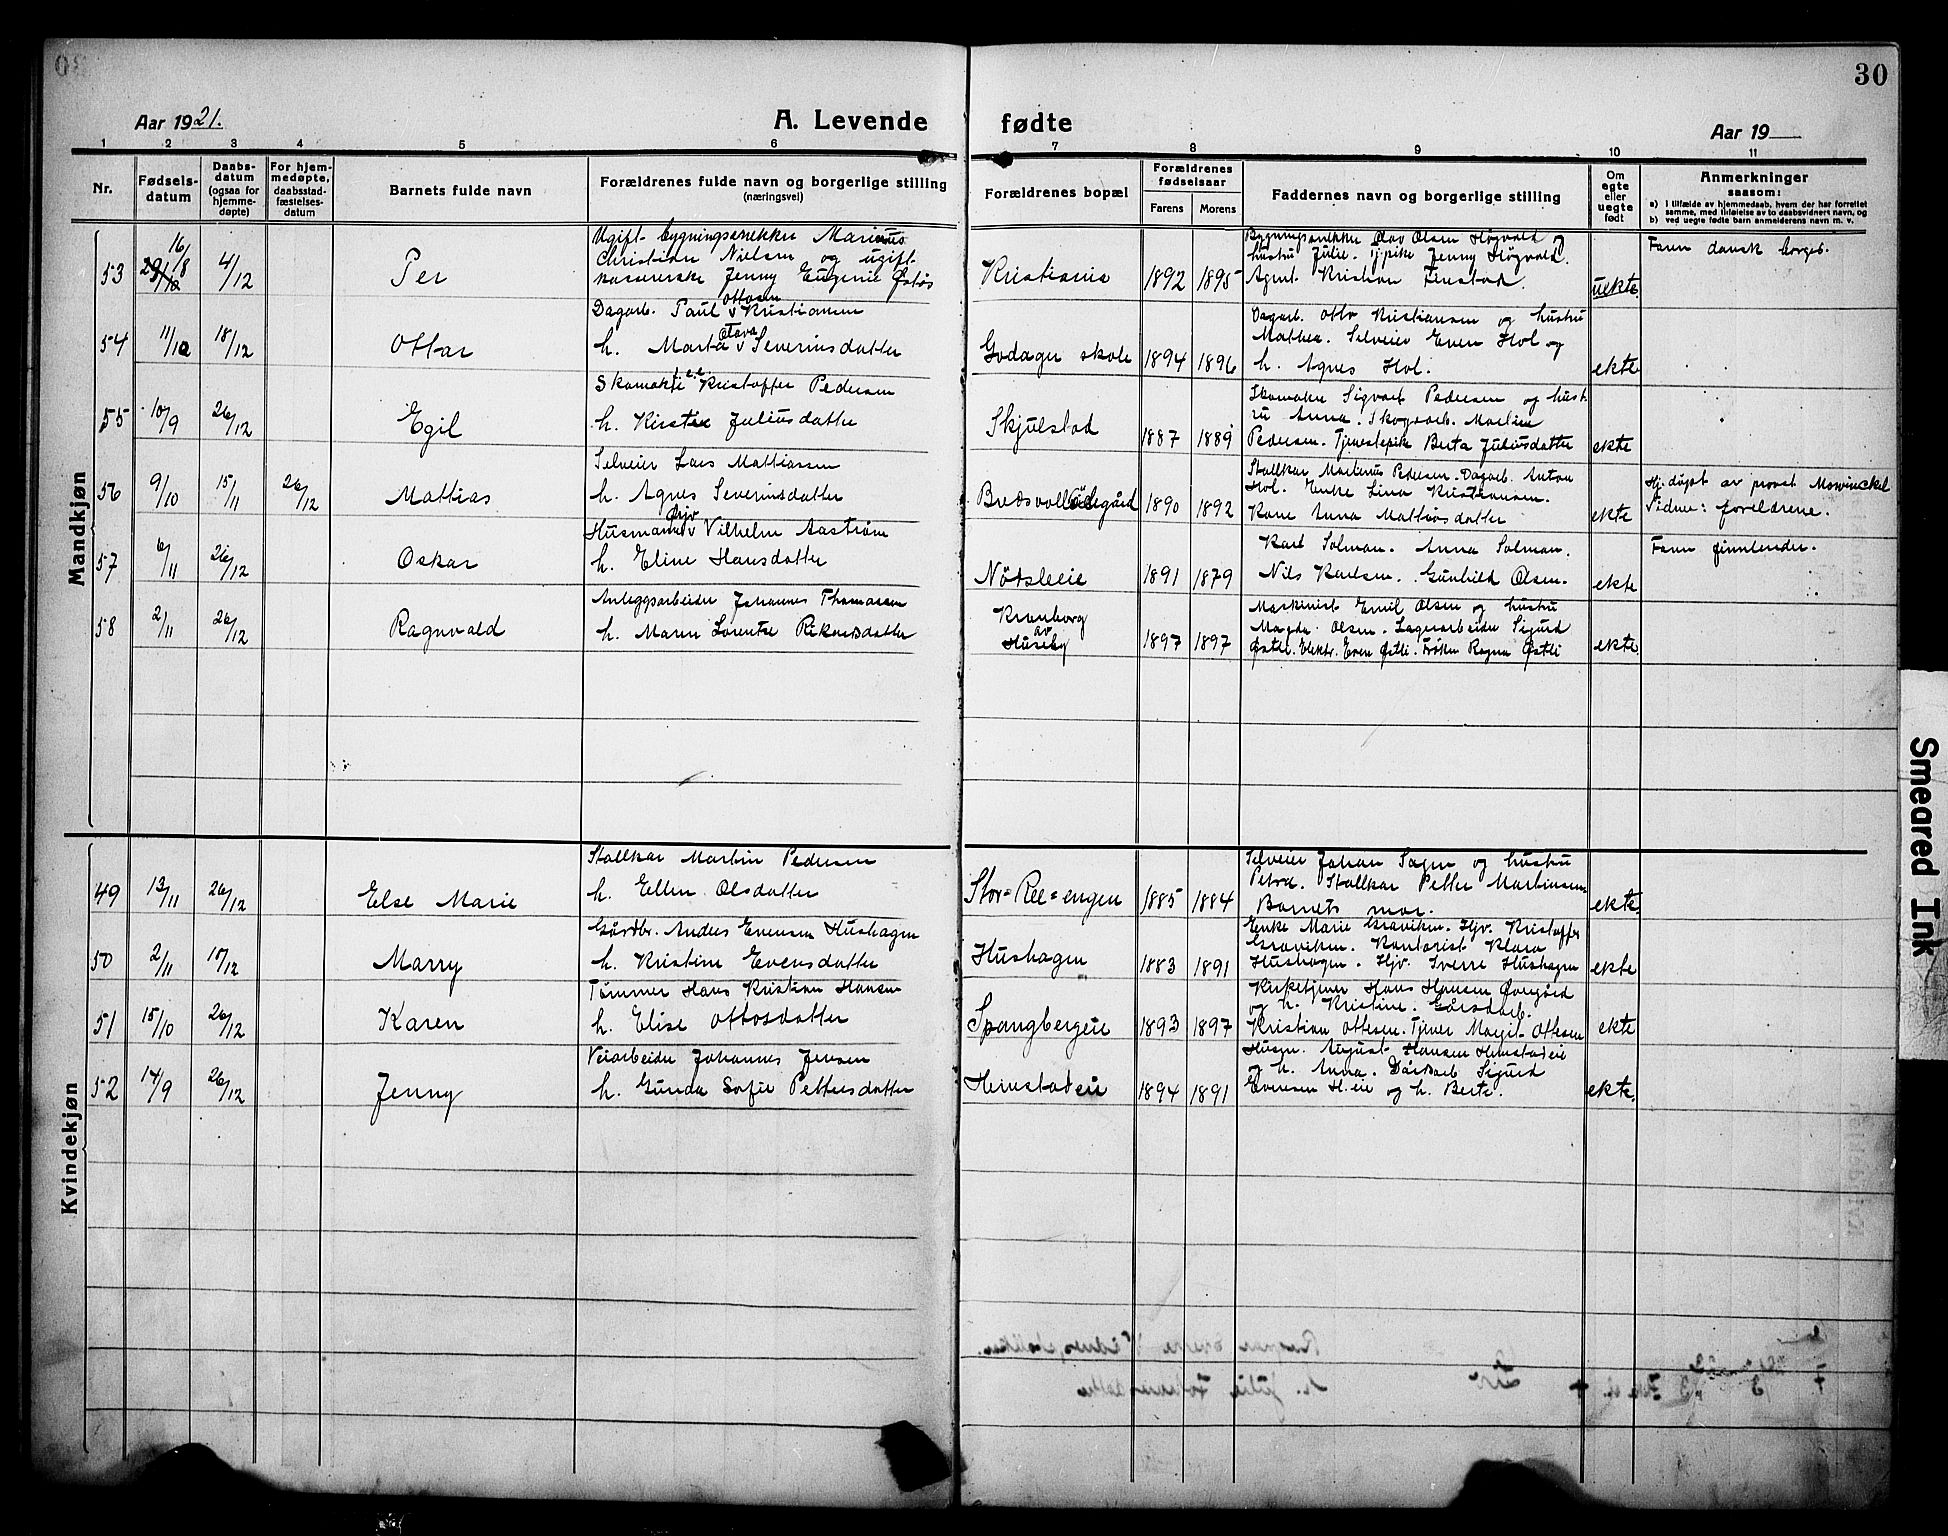 30
Aar 1921.
A. Levende fødte
Aar 19
1 2 3 4 5 6 7 8 9 10 11
Nr.
Fødsels-
datum
Daabs-
datum
(ogsaa for
hjemme-
døpte)
For hjem-
medøpte,
daabsstad-
fæstelses-
datum
Barnets fulde navn
Forældrenes fulde navn og borgerlige stilling
(næringsvei)
Forældrenes bopæl
Forældrenes
fødselsaar
Farens Morens
Faddernes navn og borgerlige stilling
Om
egte
eller
uegte
født
Anmerkninger
saasom:
a) I tilfælde av hjemmedaab, hvem der har forrettet
samme, med tilføielse av to daabsvidners navn, og
b) ved uegte fødte barn anmelderens navn m. v.
Mandkjøn
53 16/8 4/12 Per
Ugift bygningssnekker Marinus
Christian Nielsen og ugift
Jenny Eugenie Østøs
Kristiania 1892 1895
Bygningssnekker Olav Olsen Høgvald og
hustru Julie. Tj.pike Jenny Høgvald.
Agent Kristian Finstad.
uekte.
Faren dansk borger.
54 11/10 18/12 Ottar
Dagarb. Paul Ottosen Kristiansen
h. Marta Olava Severinsdatter
Godager skole 1894 1896
Dagarb. Otto Kristiansen og hustru
Mathea. Selveier Even Hol og
h. Agnes Hol.
ekte
55 10/9 26/12 Egil
Skomaker Kristoffer Pedersen
h. Kirstie Juliusdatter
Skjulstad 1887 1889
Skomaker Sigvart Pedersen og hust
ru Anna. Skogsarb. Martin
Pedersen. Tjenestepike Berta Juliusdatter
ekte
56 9/10 15/11 26/12 Mattias
Selveier Lars Mattiassen
h. Agnes Severinsdatter
Bredsvollødegård 1890 1892
Stallkar Martinus Pedersen. Dagarb. Anton
Hol. Enke Lina Kristiansen.
Kone Anna Mattiasdatter
ekte
Hj.døpt av prost Mowinckel
Vidner: foreldrene.
57 6/11 26/12 Oskar
Husmann Hjv Vilhelm Aastrøm
h. Eline Hansdatter
Nötsleie 1891 1879
Karl Solman. Anna Solman.
Nils Karlsen. Gunhild Olsen.
ekte
Faren finnlender.
58 2/11 26/12 Ragnvald
Anleggsarbeider Johannes Thomassen
h. Maren Lorentse Rikardsdatter
Kronborg
av
Huseby
1897 1897
Maskinist Emil Olsen og hustru
Magda Olsen. Lagerarbeider Sigurd
Østli. Elektr. Even Østli. Frøken Ragna Østli
ekte.
Kvindekjøn
49 13/11 26/12 Else Marie
Stallkar Martin Pedersen
h. Ellen Olsdatter
Stor-Ree-engen 1885 1884
Selveier Johan Sagen og hustru
Petra. Stallkar Petter Martinsen
Barnets mor.
ekte.
50 2/11 17/12 Marry
Gårdbr. Anders Evensen Hushagen
h. Kristine Evensdatter
Hushagen 1883 1891
Enke Marie Graviken. Hjv. Kristoffer
Graviken. Kontorist Klara
Hushagen. Hjv. Sverre Hushagen
ekte
51 15/10 26/12 Karen
Tømmer Hans Kristian Hansen
h. Elise Ottosdatter
Spangbergeie 1893 1897
Kirketjener Hans Hansen Overgård
og h. Kristine. Gårdsarb.
Kristian Ottesen. Tjener Margit Ottesen
ekte
52 14/9 26/12 Jenny
Veiarbeider Johannes Jensen
h. Gunda Sofie Pettersdatter
Heimstadeie 1894 1891
Husm. August Hansen Heimstadeie
og h. Anna. Sigurd
Evensen H.eie og h. Berte.
ekte.
Smeared Ink